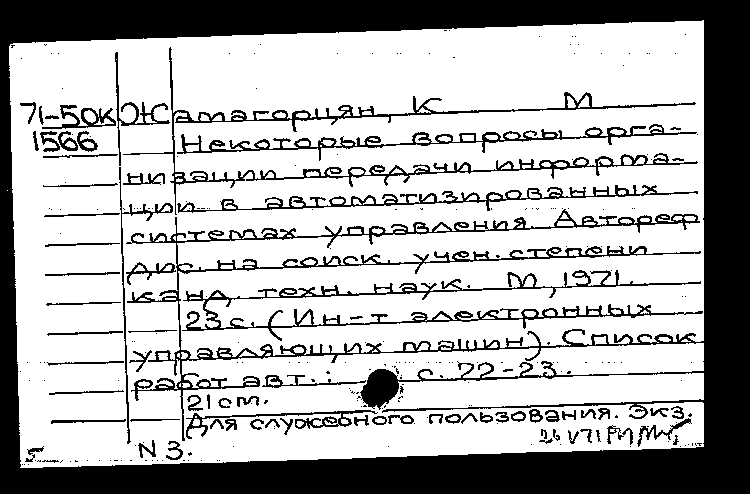 71-50к Жамагорцян, К М
1566 Некоторые вопросы орга-
низации передачи информа-
ции в автоматизированных
системах управления. Автореф
дис. на соиск. учен. степени
канд. техн. наук. М, 1971.
23с. (Ин-т электронных
управляющих машин). Список
работ авт.: с. 22-23.
21 см.
Для служебного пользования. Экз.
N 3.